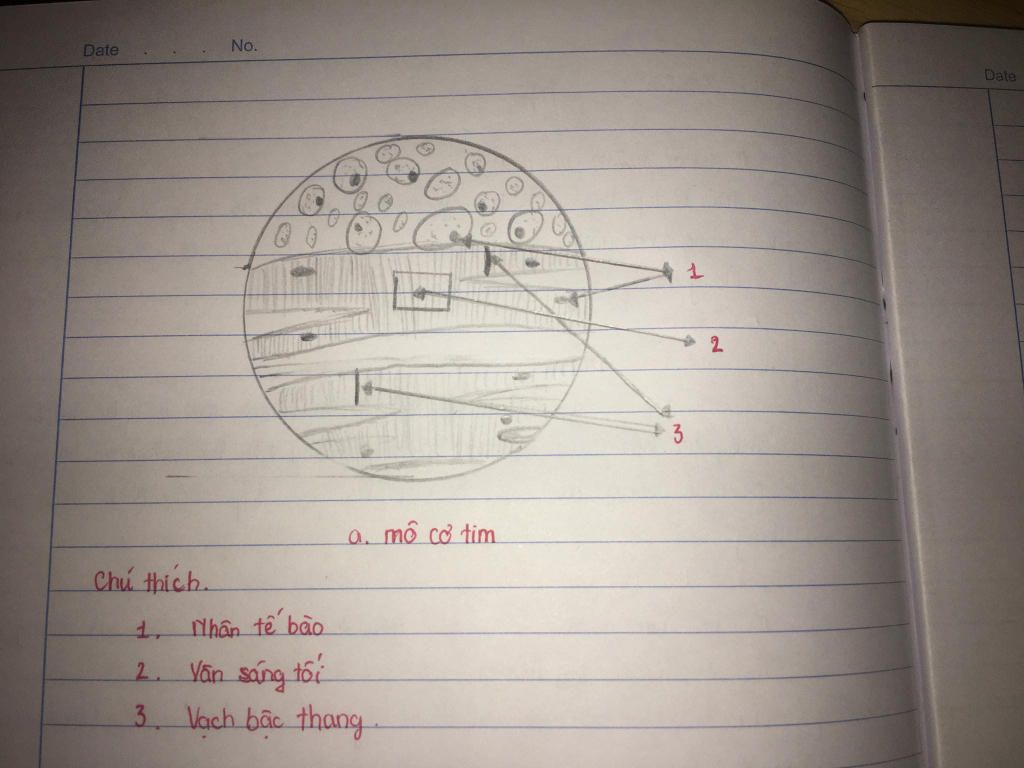 Date . . . No.
Date
1
2
3
a. mô cơ tim
Chú thích.
1. Nhân tế bào
2. Vân sáng tối
3. Vạch bậc thang.